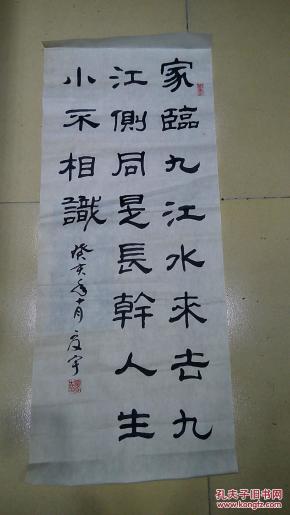 家臨九江水来去九
江側同是長幹人生
小不相識
癸亥年
孔夫子旧书网